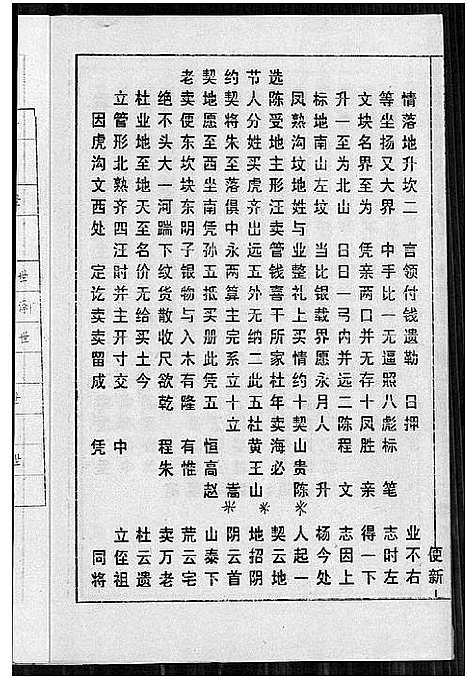 情落地升坎二 言领付钱遗勒 日押 业不右
等坐扬又大界 中手比一无逼照八彪标 笔 志时左
文块名界至为 凭亲两口并无存十凤胜 亲 得一下
升一至为北山 日日一弓内并远二陈程 文 志因上
标地南山左坟 当比银载界愿永月人 升 杨今处
凤熟沟坟地姓与业整礼上买情约十契山贵陈 人起一
选陈受地主形汪卖管钱喜干所家杜年卖海必 契云地
节人分姓买虎齐出远五外无纳二此五杜黄王山 地招阴
约契将朱至落俱中永两算主完系立十立 嵩 阴云首
契地愿至西坐南凭孙五抵买册此凭五 恒高赵 山泰下
老卖便东坎块东明子银物与入木有隆 有惟 荒云宅
绝不头大一河踹下纹货散收尺欲乾 程朱 卖万老
杜业地至地天至名价无给买土今 杜云遗
立管形北熟齐四汪时并主开寸交 中 立侄祖
因虎沟文西处 定讫卖卖留成 凭 同将
使新